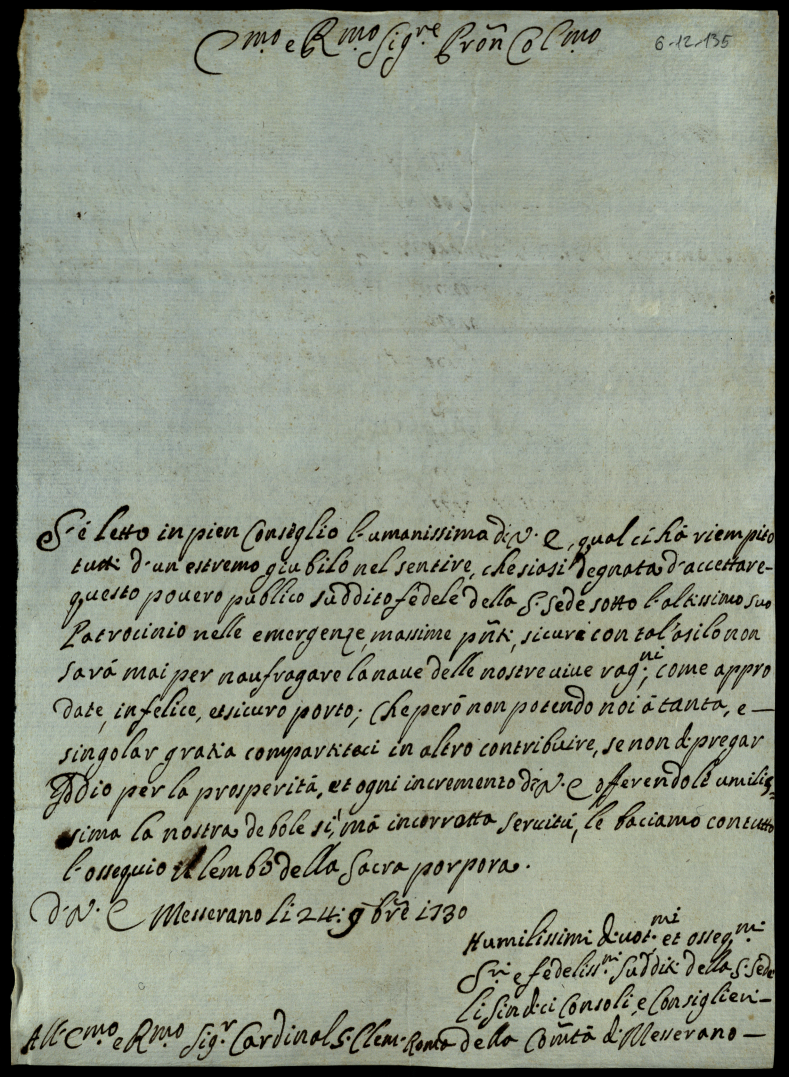 Emo e Rmo Sigre Pron Colmo
6-12-135
S'é letto in pien Consiglio l'umanissima di V. E, qual ci há riempito
tutti d'un estremo giubilo nel sentire, che siasi degnata d'accettare
questo povero publico suddito fedele della S. Sede sotto l'altissimo suo
Patrocinio nelle emergenze, massime pnti, sicuri con tal'asilo non
sará mai per naufragare la nave delle nostre vive ragni, come appro
date, in felice, et sicuro porto; Che peró non potendo noi á tanta, e
singolar gratia compartitaci in altro contribuire, se non di pregar
Iddio per la prosperitá, et ogni incremento di V. E offerendole umilis
sima la nostra debole si, má incorrotta servitú, le baciamo con tutto
l'ossequio il lembo della Sacra porpora.
D. V. E Messerano li 24: 9bre 1730
Humilissimi divoti.mi et osseq.mi
Sri e fedeliss.mi Sudditi della S. Sede
Li Sindici Consoli, e Consiglieri
All' Emo e Rmo Sigr Cardinal S. Clem. Roma della Comtá di Messerano